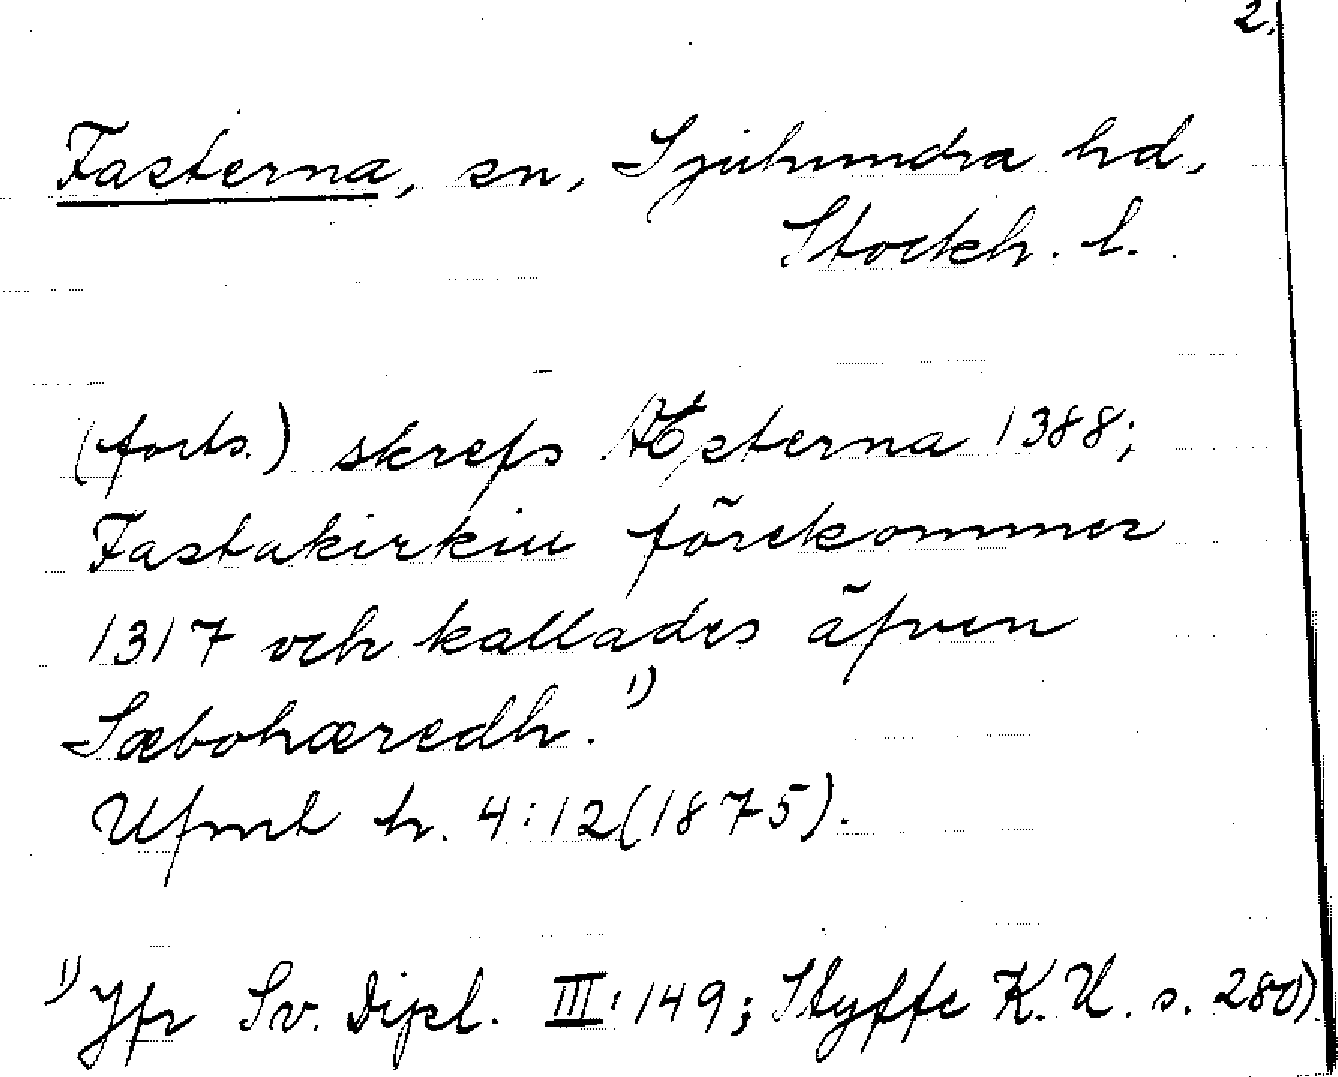 2.
Fasterna, sn, Sjuhundra hd,
Stockh. l.
(forts.) skrefs Æsterna 1388;
Fastakirkiu förekommer
1317 och kallades äfven
Sæbohæredh. 1)
Ufmt h. 4:12(1875).
1) Jfr Sv. Dipl. III:149; Styffe K.U. s. 280)